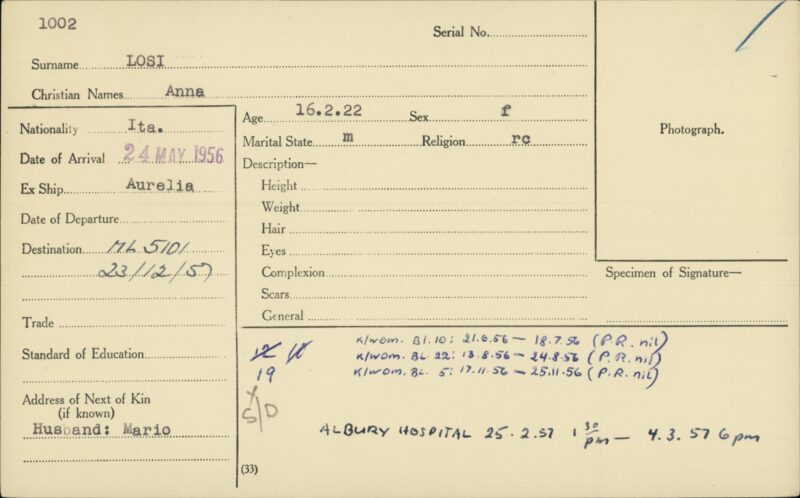 1002
Serial No.
Surname LOSI
Christian Names Anna
Nationality Ita.
Date of Arrival 24 MAY 1956
Ex Ship Aurelia
Date of Departure
Destination ML 5101
23/12/57
Trade
Standard of Education
Address of Next of Kin
(if known)
Husband: Mario
Age 16.2.22 Sex f
Marital State m Religion rc
Description—
Height
Weight
Hair
Eyes
Complexion
Scars
General
Photograph.
Specimen of Signature—
K/wom. Bl. 10: 21.6.56 – 18.7.56 (P.R. nil)
K/wom. BL. 22: 13.8.56 – 24.8.56 (P.R. nil)
19 K/wom. BL. 5: 17.11.56 – 25.11.56 (P.R. nil)
S/D
ALBURY HOSPITAL 25.2.57 1 30 pm – 4.3.57 6pm
(33)